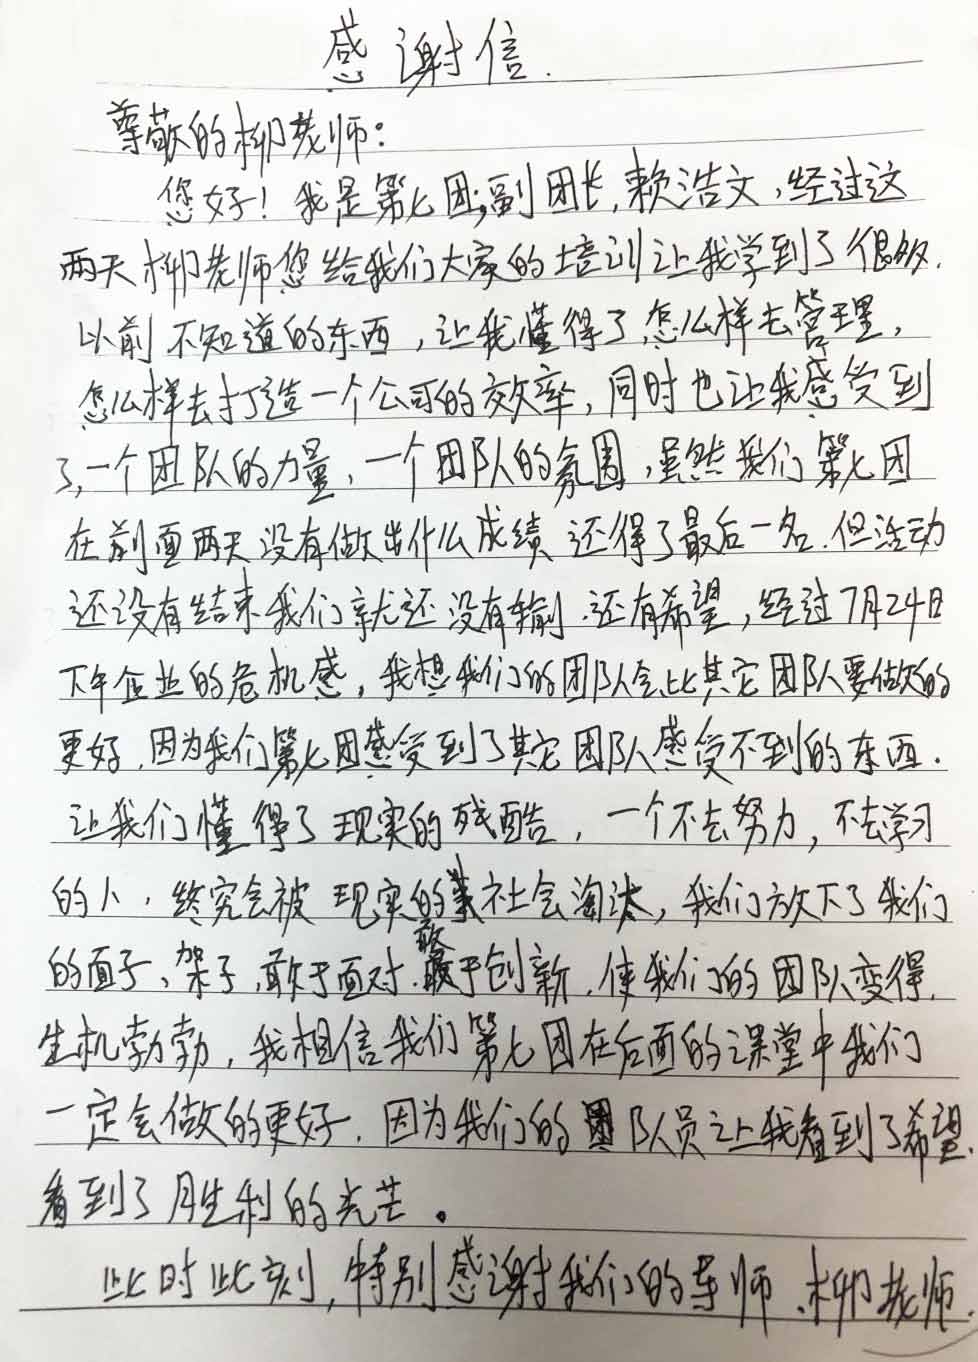 感谢信.
尊敬的柳老师:
您好！我是第七团副团长,赖浩文,经过这
两天柳老师您给我们大家的培训让我学到了很多.
以前不知道的东西,让我懂得了怎么样去管理,
怎么样去打造一个公司的效率,同时也让我感受到
了,一个团队的力量,一个团队的氛围,虽然我们第七团
在前面两天没有做出什么成绩 还得了最后一名.但活动
还没有结束我们就还没有输.还有希望,经过7月24日
下午企业的危机感,我想我们的团队会比其它团队要做的
更好.因为我们第七团感受到了其它团队感受不到的东西.
让我们懂得了现实的残酷,一个不去努力,不去学习
的人,终究会被现实的社会淘汰,我们放下了我们
的面子、架子,敢于面对.敢于创新.使我们的团队变得.
生机勃勃,我相信我们第七团在后面的课堂中我们
一定会做的更好.因为我们的团队员让我看到了希望.
看到了胜利的光芒。
此时此刻,特别感谢我们的导师、柳老师.